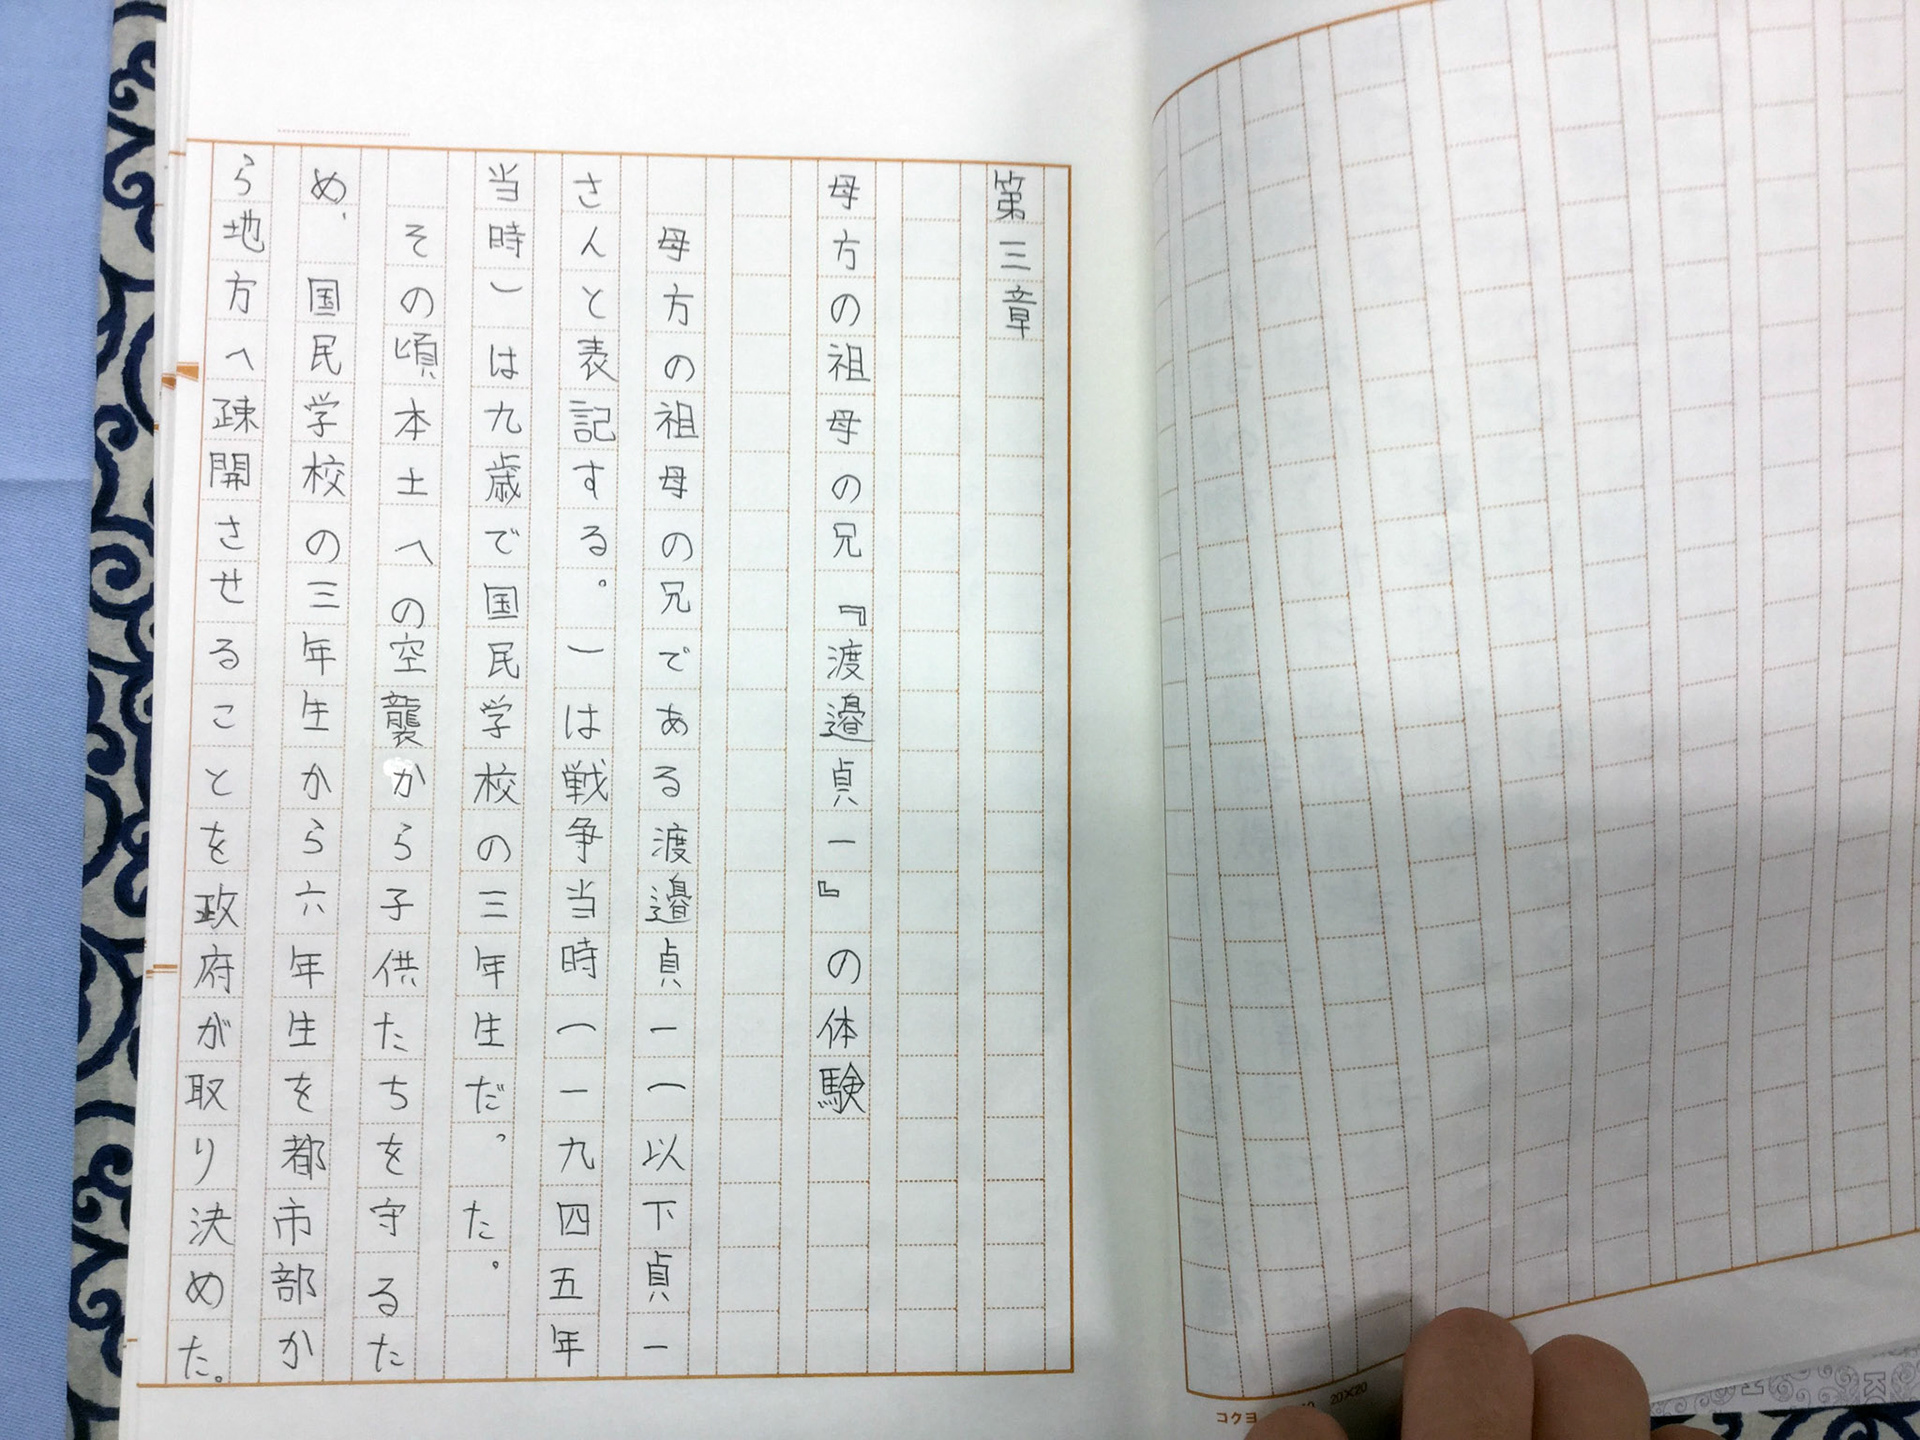 第三章
母方の祖母の兄『渡邉貞一』の体験
母方の祖母の兄である渡邉貞一(以下貞一
さんと表記する。)は戦争当時(一九四五年
当時)は九歳で国民学校の三年生だった。
その頃本土への空襲から子供たちを守るた
め、国民学校の三年生から六年生を都市部か
ら地方へ疎開させることを政府が取り決めた。
コクヨ
20×20